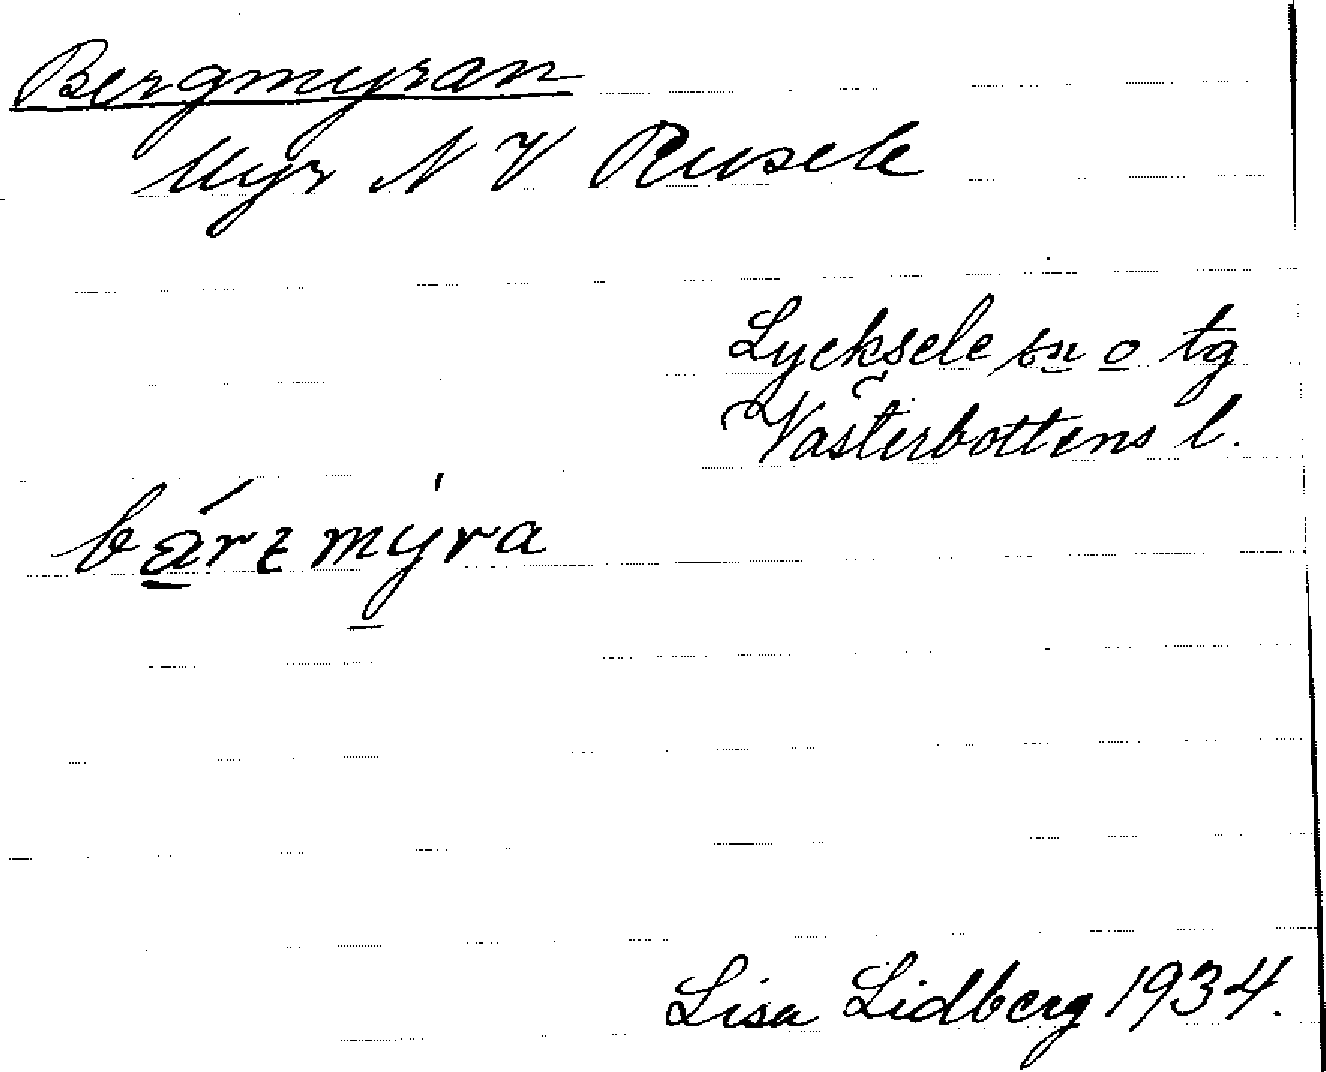 Bergmyran
Myr N V Rusele
Lycksele sn o tg
Västerbottens l.
bärzmyra
Lisa Lidberg 1934.